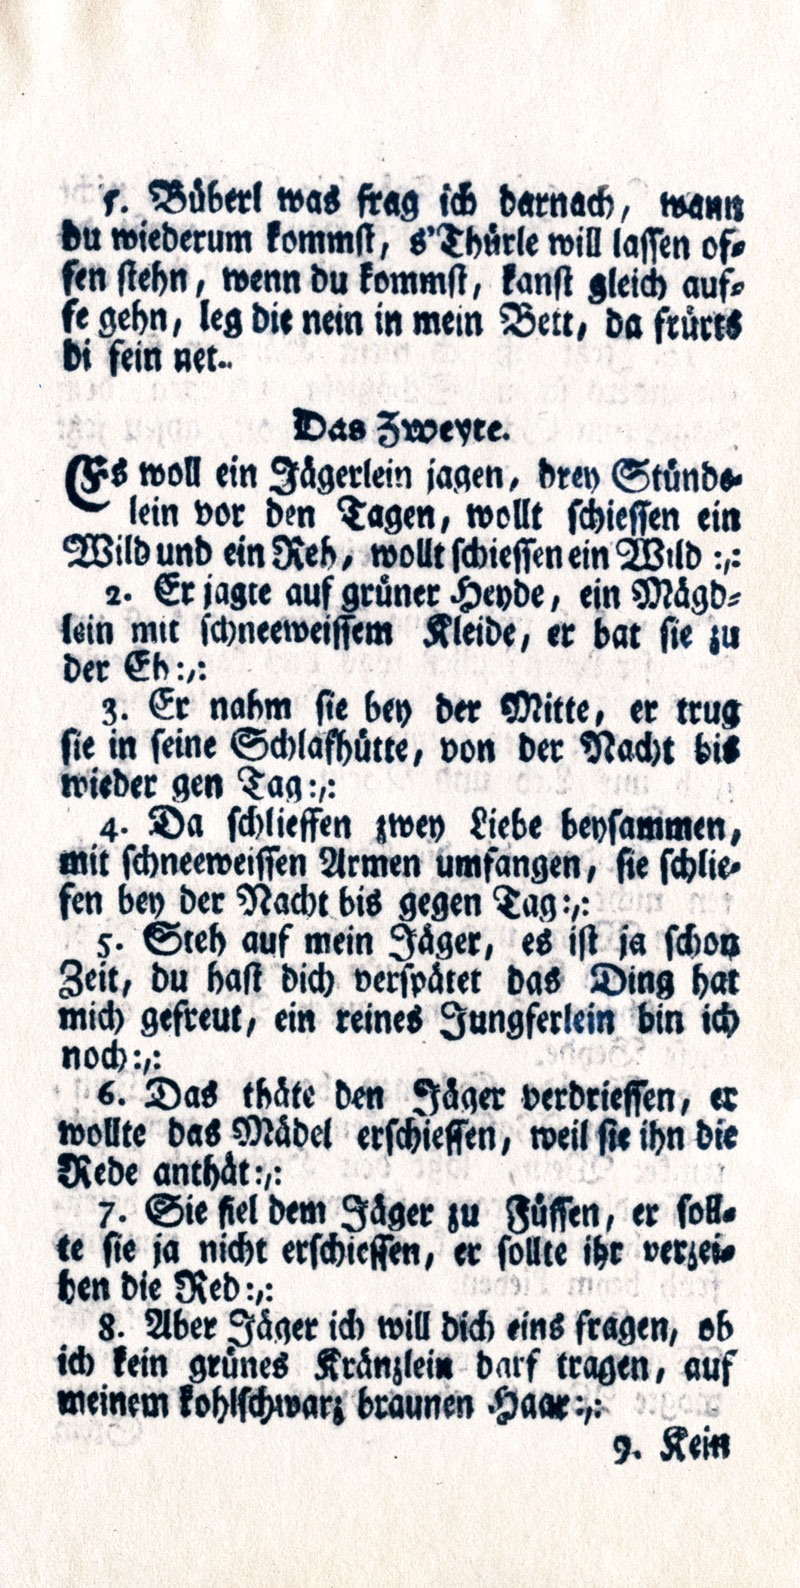 5. Büberl was frag ich darnach, wann
du wiederum kommst, s'Thürle will lassen of-
fen stehn, wenn du kommst, kanst gleich auf-
fe gehn, leg die nein in mein Bett, da frürts
di fein net..
Das Zweyte.
Es woll ein Jägerlein jagen, drey Stünde-
lein vor den Tagen, wollt schiessen ein
Wild und ein Reh, wollt schiessen ein Wild :,:
2. Er jagte auf grüner Heyde, ein Mägd-
lein mit schneeweissem Kleide, er bat sie zu
der Eh:,:
3. Er nahm sie bey der Mitte, er trug
sie in seine Schlafhütte, von der Nacht bis
wieder gen Tag:,:
4. Da schlieffen zwey Liebe beysammen,
mit schneeweissen Armen umfangen, sie schlie-
fen bey der Nacht bis gegen Tag:,:
5. Steh auf mein Jäger, es ist ja schon
Zeit, du hast dich verspätet das Ding hat
mich gefreut, ein reines Jungferlein bin ich
noch:,:
6. Das thäte den Jäger verdriessen, er
wollte das Mädel erschiessen, weil sie ihn die
Rede anthät:,:
7. Sie fiel dem Jäger zu Füssen, er soll-
te sie ja nicht erschiessen, er sollte ihr verzei-
hen die Red:,:
8. Aber Jäger ich will dich eins fragen, ob
ich kein grünes Kränzlein darf tragen, auf
meinem kohlschwarz braunen Haar:,:
9. Kein